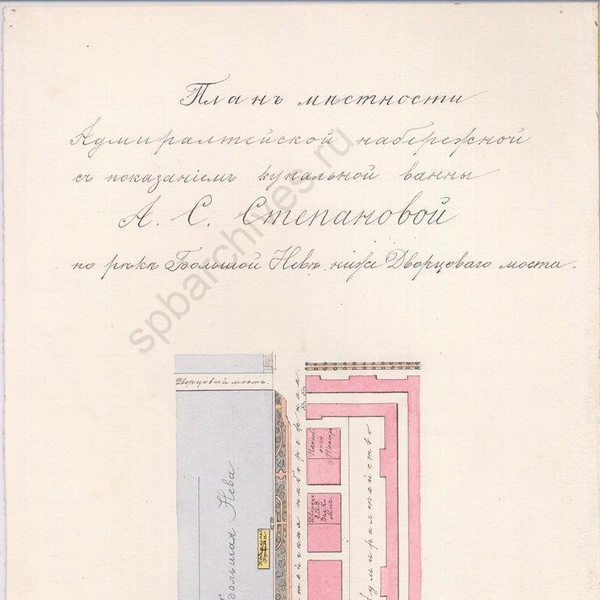 Планъ мѣстности
Адмиралтейской набережной
съ показаніемъ купальной ванны
А. С. Степановой
по рѣкѣ Большой Невѣ ниже Дворцоваго моста.
spbarchives.ru
Дворцовый мостъ
Большая Нева
набережная
Адмиралтейство